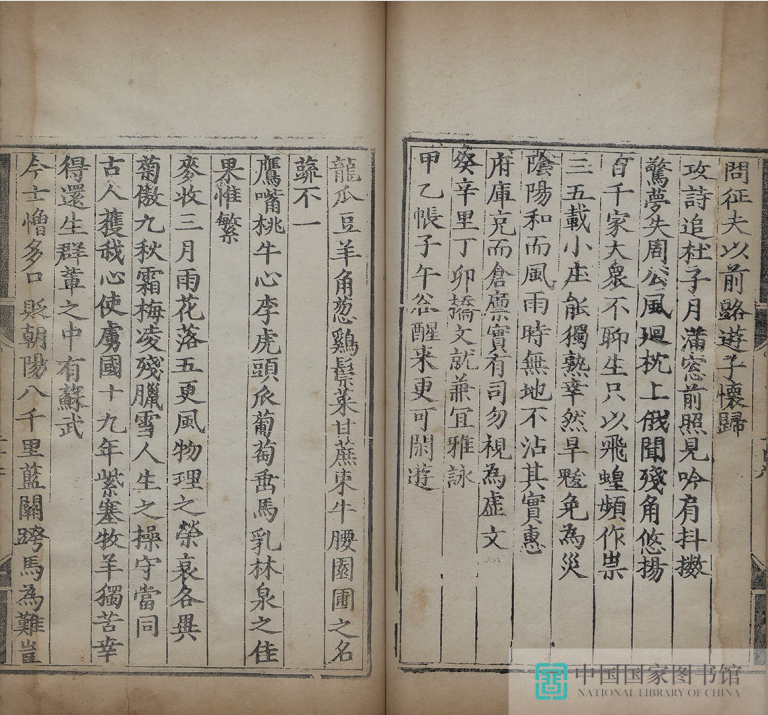 問征夫以前路遊子懷歸
攻詩追杜子月滿窓前照見吟肩抖擻
驚夢失周公風廻枕上俄聞殘角悠揚
百千家大衆不聊生只以飛蝗頻作祟
三五載小座能獨熟幸然旱魃免為災
陰陽和而風雨時無地不沾其實惠
府庫充而倉廪實有司勿視為虛文
癸辛里丁卯橋文就兼宜雅詠
甲乙帳子午谷醒来更可閑遊
龍瓜豆羊角葱鷄鬃菜甘蔗束牛腰園圃之名
蔬不一
鷹嘴桃牛心李虎頭瓜葡萄垂馬乳林泉之佳
果惟繁
麥收三月雨花落五更風物理之榮衰各異
菊傲九秋霜梅凌殘臘雪人生之操守當同
古人獲我心使虜國十九年紫塞牧羊獨苦幸
得還生群輩之中有蘇武
今士憎多口貶朝陽八千里藍關跨馬為難豈
中国国家图书馆
NATIONAL LIBRARY OF CHINA